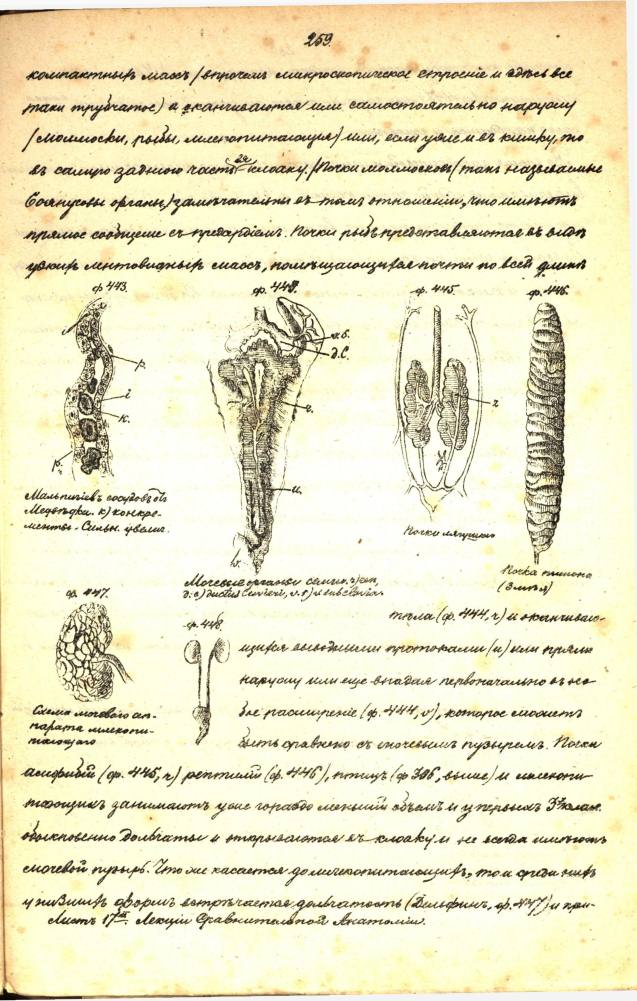 259.
компактныхъ массъ (впрочемъ микроскопическое строеніе и здѣсь все
таки трубчатое) и оканчиваются или самостоятельно наружу
(моллюски, рыбы, млекопитающія) или, если уже и въ кишку, то
въ самую заднюю часть ея клоаку. (Почки моллюсковъ (такъ называемые
Боянусовы органы) замѣчательны въ томъ отношеніи, что имѣютъ
прямое сообщеніе съ предсердіемъ. Почки рыбъ представляются въ видѣ
узкихъ лентовидныхъ массъ, помѣщающихся почти по всей длинѣ
ф. 443.
ф. 444.
ф. 445.
ф. 446.
p.
i
к.
p.
д.С.
r.
u.
v.
r
Мальпигіевъ сосудъ
Медвѣдки. к) конкре-
менты. Сильн. увелич.
Мочевые органы
d.c) ductus Cuvieri,
Почки лягушки
Почка питона
(Змѣя)
ф. 447.
ф. 448.
Схема мочевого ап-
парата млекопи-
тающаго
тѣла (ф. 444, r) и оканчиваю-
щихся выводными протоками (u) или прямо
наружу или еще впадая первоначально въ не-
бое расширеніе (ф. 444, v), которое можетъ
быть сравнено съ мочевымъ пузыремъ. Почки
амфибій (ф. 445, r) рептилій (ф. 446), птицъ (ф 306, выше) и млекопи-
тающихъ занимаютъ уже гораздо меньшій объемъ и у первыхъ 3хъ клас.
обыкновенно дольчаты и открываются въ клоаку и не всегда имѣютъ
мочевой пузырь. Что же касается до млекопитающихъ, то и среди нихъ
у низшихъ формъ встрѣчается дольчатость (Дельфинъ, ф. 447) и при-
Листъ 17й Лекціи Сравнительной Анатоміи.